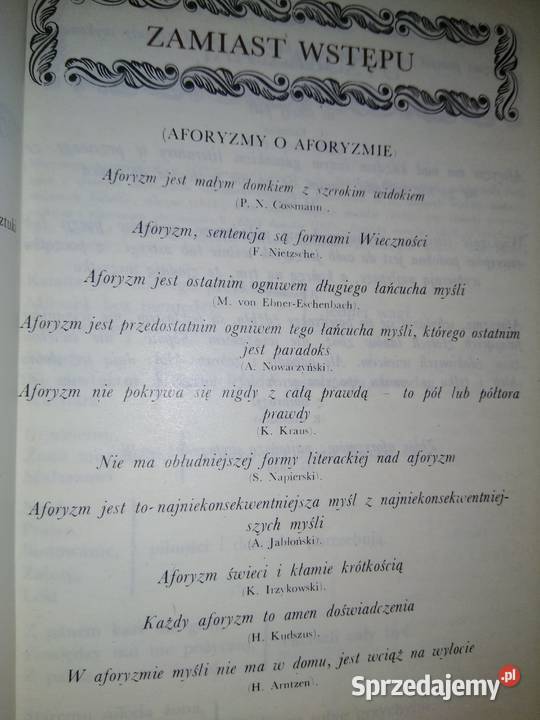 ZAMIAST WSTĘPU
(AFORYZMY O AFORYZMIE)
Aforyzm jest małym domkiem z szerokim widokiem
(P. N. Cossmann).
Aforyzm, sentencja są formami Wieczności
(F. Nietzsche).
Aforyzm jest ostatnim ogniwem długiego łańcucha myśli
(M. von Ebner-Eschenbach).
Aforyzm jest przedostatnim ogniwem tego łańcucha myśli, którego ostatnim
jest paradoks
(A. Nowaczyński).
Aforyzm nie pokrywa się nigdy z całą prawdą – to pół lub półtora
prawdy
(K. Kraus).
Nie ma obłudniejszej formy literackiej nad aforyzm
(S. Napierski).
Aforyzm jest to-najniekonsekwentniejsza myśl z najniekonsekwentniej-
szych myśli
(A. Jabłoński).
Aforyzm świeci i kłamie krótkością
(K. Irzykowski).
Każdy aforyzm to amen doświadczenia
(H. Kudszus).
W aforyzmie myśli nie ma w domu, jest wciąż na wylocie
(H. Arntzen).
ztuki
Sprzedajemy.pl